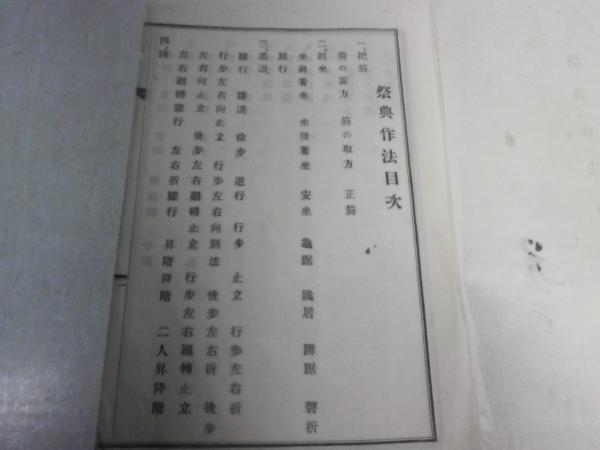 祭典作法目次
一、把笏
笏の置方　笏の取方　正笏
二、起坐
坐前着坐　坐後着坐　安坐　亀踞　跪居　蹲踞　磬折
屈行
三、進退
膝行　膝退　徐歩　逆行　行歩　止立　行歩左右折
行歩左右向止立　行歩左右向別法　後歩左右折　後歩
左右向止立　後歩左右廻轉止立　行歩左右廻轉止立
左右廻轉膝行　左右折膝行　昇階降階　二人昇降階